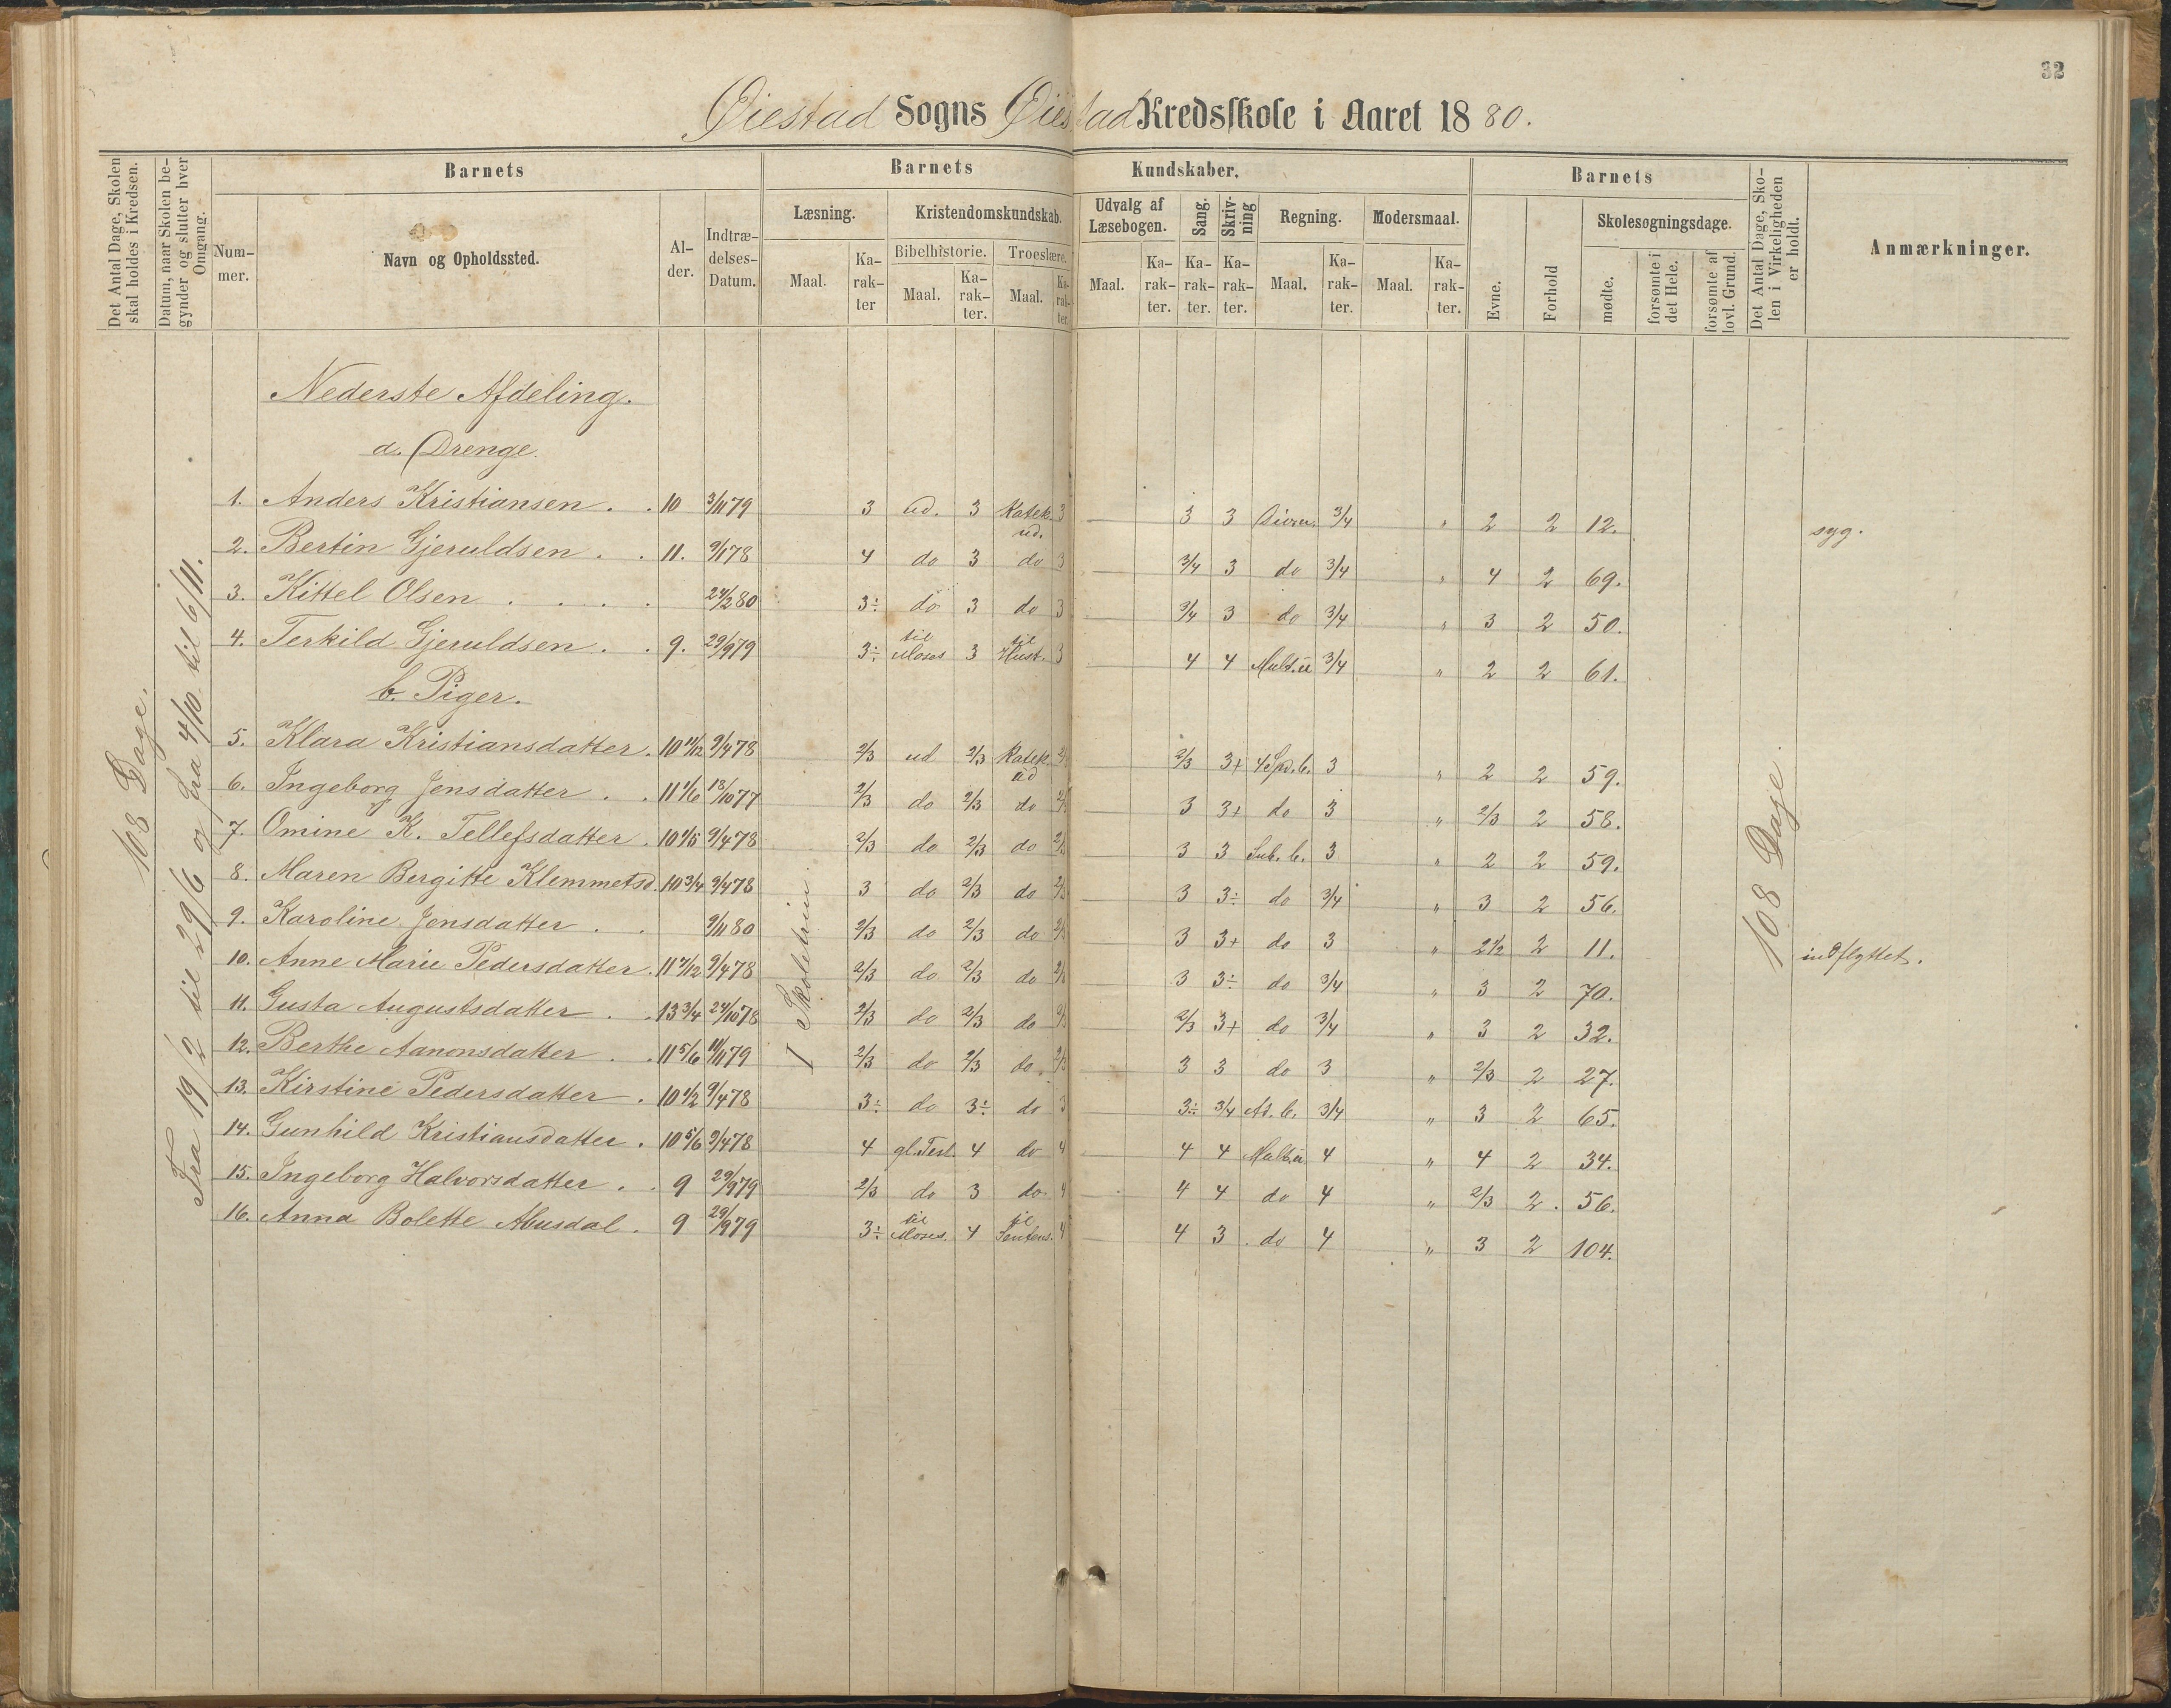 32
Øiestad Sogns Øiestad Kredsskole i Aaret 1880.
Det Antal Dage, Skolen skal holdes i Kredsen.
Datum, naar Skolen begynder og slutter hver Omgang.
Barnets
Nummer.
Navn og Opholdssted.
Alder.
Indtrædelses-Datum.
Barnets Kundskaber.
Læsning.
Maal. Karakter
Kristendomskundskab.
Bibelhistorie. Troeslære.
Maal. Karakter. Maal. Karakter.
Udvalg af Læsebogen.
Maal. Karakter.
Sang. Karakter.
Skrivning Karakter.
Regning.
Maal. Karakter.
Modersmaal.
Maal. Karakter.
Barnets
Evne.
Forhold
Skolesøgningsdage.
mødte.
forsømte i det Hele.
forsømte af lovl. Grund.
Det Antal Dage, Skolen i Virkeligheden er holdt.
Anmærkninger.
108 Dage.
Fra 19/2 til 29/6 og fra 4/10 til 6/11.
I Skoletrin.
108 Dage.
Nederste Afdeling.
a. Drenge.
1. Anders Kristiansen . . 10 3/11 79 3 ud. 3 Katek. ud. 3 3 3 3/4 " 2 2 12. syg.
2. Bertin Gjeruldsen . . 11. 9/1 78 4 do 3 do 3 3/4 3 do 3/4 " 4 2 69.
3. Kittel Olsen . . . . 24/2 80 3÷ do 3 do 3 3/4 3 do 3/4 " 3 2 50.
4. Terkild Gjeruldsen . . 9. 29/9 79 3÷ til Moses 3 til Hust. 3 4 4 Mult. 3/4 " 2 2 61.
b. Piger.
5. Klara Kristiansdatter . 10 11/12 9/4 78 2/3 ud 2/3 Katek. ud 2/3 2/3 3+ 3 " 2 2 59.
6. Ingeborg Jensdatter . . 11 1/6 18/10 77 2/3 do 2/3 do 2/3 3 3+ do 3 " 2/3 2 58.
7. Omine K. Tellefsdatter . 10 1/5 9/4 78 2/3 do 2/3 do 2/3 3 3 Sub. b. 3 " 2 2 59.
8. Maren Bergitte Klemmetsd. 10 3/4 9/4 78 3 do 2/3 do 2/3 3 3÷ do 3/4 " 3 2 56.
9. Karoline Jensdatter . . 9/11 80 2/3 do 2/3 do 2/3 3 3+ do 3 " 2 1/2 2 11. indflyttet.
10. Anne Marie Pedersdatter . 11 7/12 9/4 78 2/3 do 2/3 do 2/3 3 3÷ do 3/4 " 3 2 70.
11. Gusta Augustsdatter . . 13 3/4 24/10 78 2/3 do 2/3 do 2/3 2/3 3+ do 3/4 " 3 2 32.
12. Berthe Aanonsdatter . . 11 5/6 11/11 79 2/3 do 2/3 do. 2/3 3 3 do 3 " 2/3 2 27.
13. Kirstine Pedersdatter . 10 1/2 9/4 78 3÷ do 3÷ do 3 3÷ 3/4 Ad. b. 3/4 " 3 2 65.
14. Gunhild Kristiansdatter . 10 5/6 9/4 78 4 gl. Test. 4 do 4 4 4 Mult. 4 " 4 2 34.
15. Ingeborg Halvorsdatter . . 9 29/9 79 2/3 do 3 do. 4 4 4 do 4 " 2/3 2. 56.
16. Anna Bolette Abusdal . 9 29/9 79 3÷ til Moses. 4 til Sentens. 4 4 3 do 4 " 3 2 104.